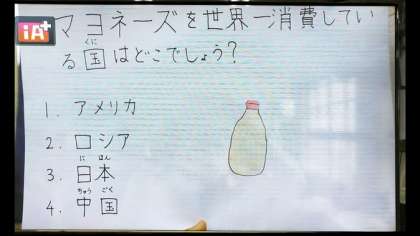 iA+
マヨネーズを世界一消費してい
る国はどこでしょう？
くに
1. アメリカ
2. ロシア
3. 日本
にほん
4. 中国
ちゅうごく